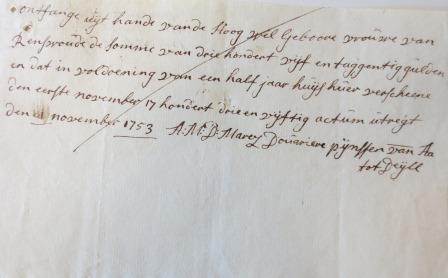 ontfange uijt hande vande Hoog wel Geboore vrouwe van
Renswoude de somme van drie hondert vijf en taggentig gulden
en dat in voldoening van een half jaar huijs huer verscheene
den eerste november 17 hondert drie en vijftig actum utregt
den november 1753 A: M: D: Marez Douariere pijnssen van Aa
tot Deijll